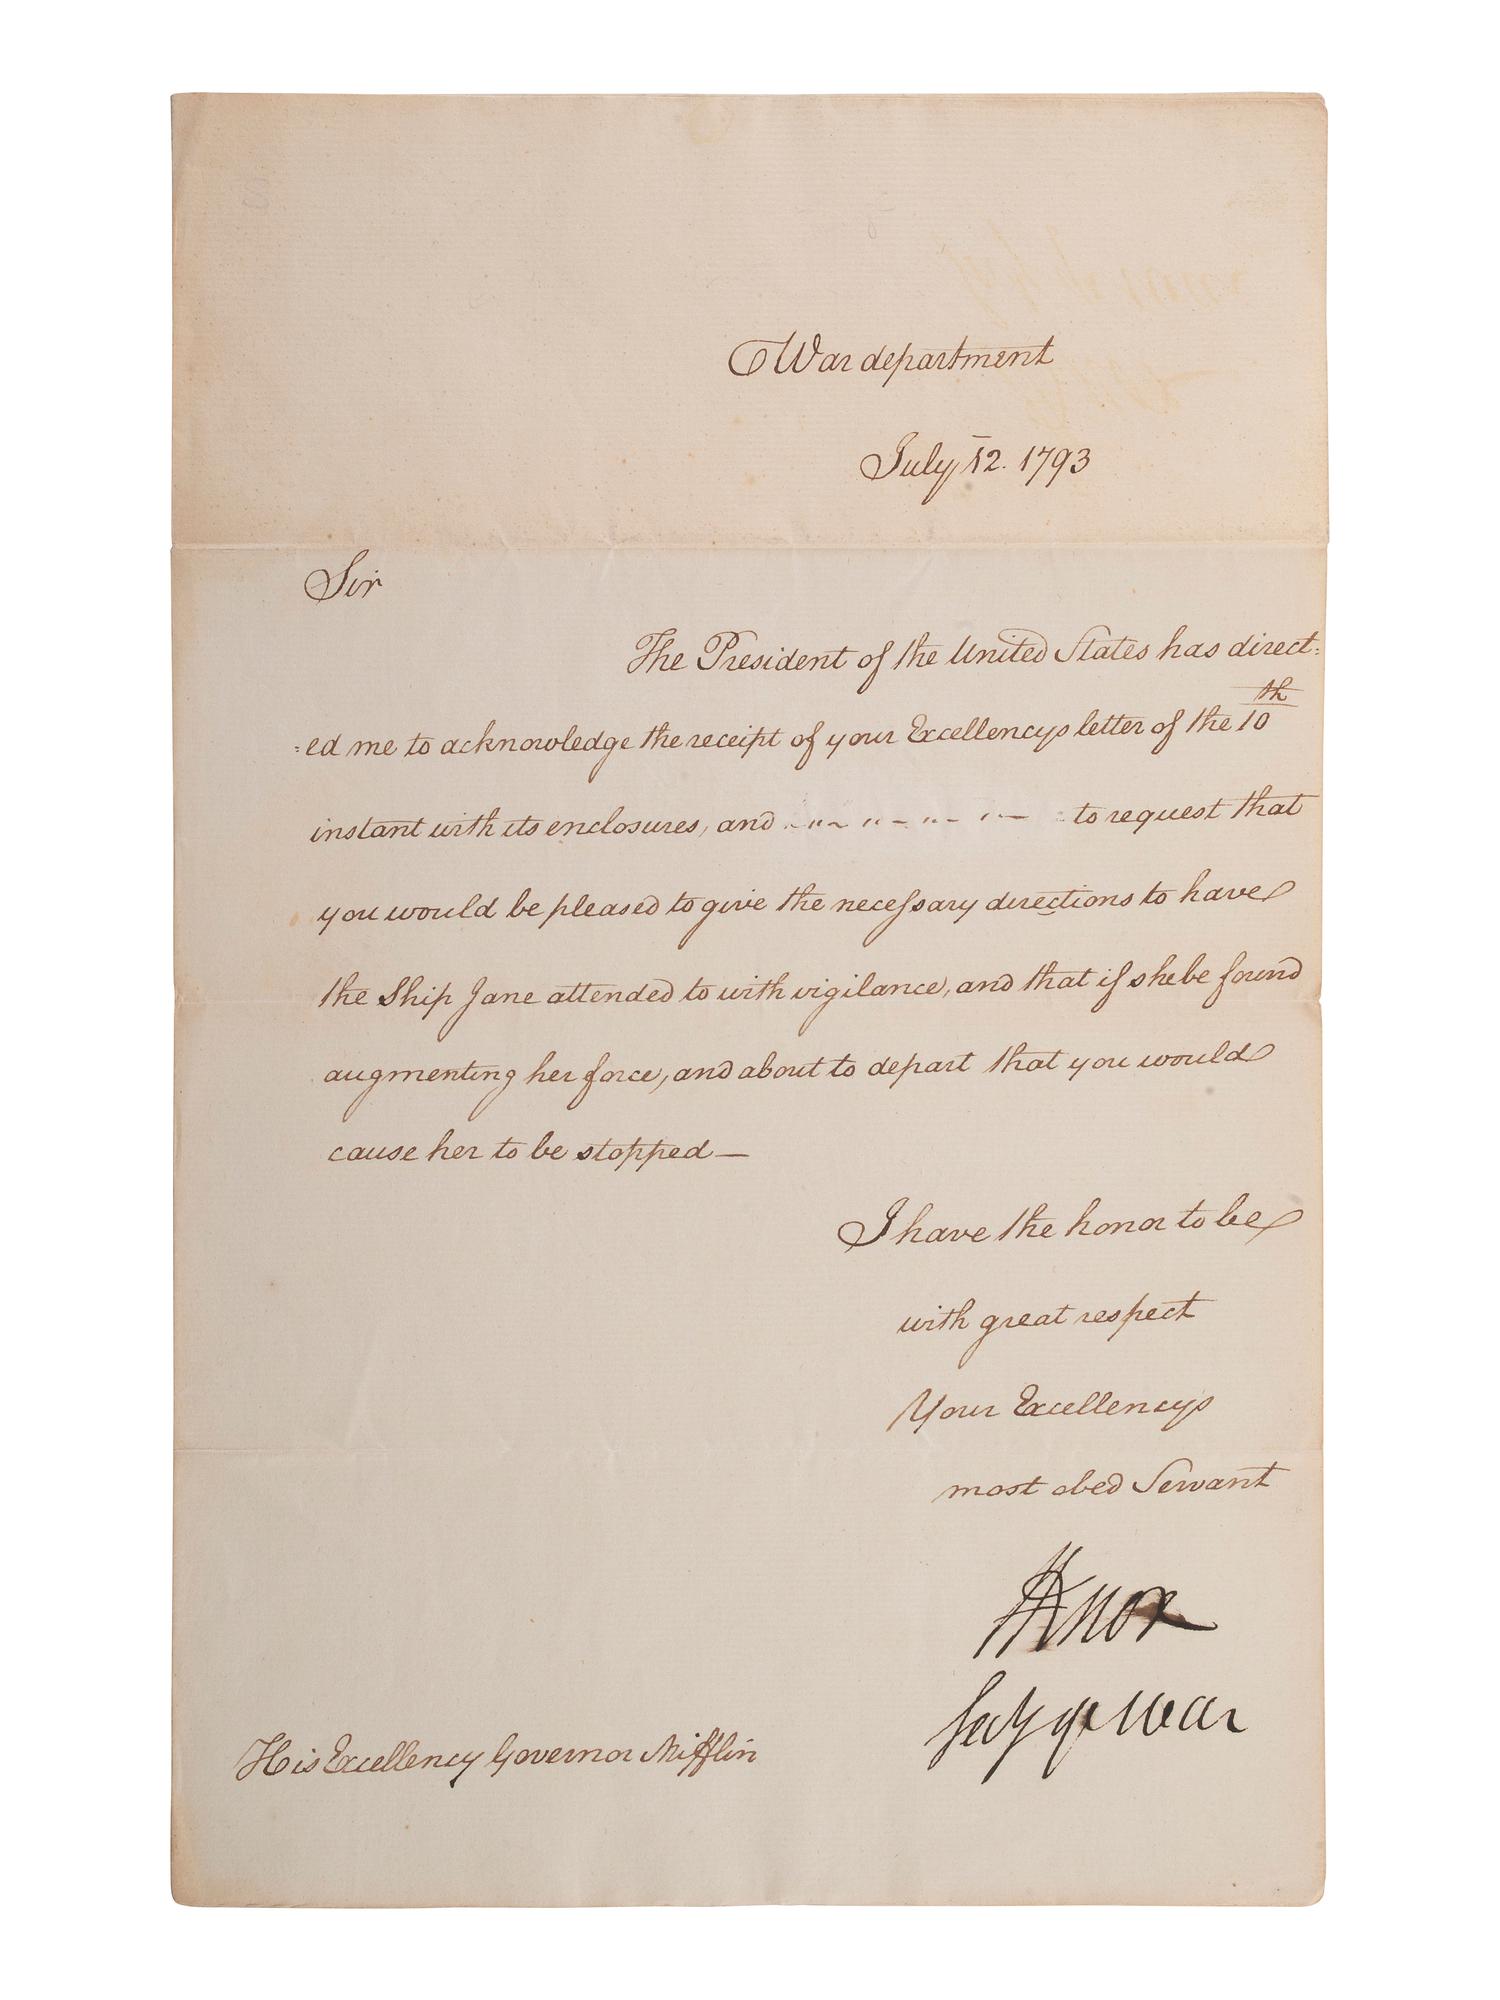 War department
July 12. 1793
Sir
The President of the United States has direct:
:ed me to acknowledge the receipt of your Excellencys letter of the 10th
instant with its enclosures, and to request that
you would be pleased to give the necessary directions to have
the Ship Jane attended to with vigilance, and that if she be found
augmenting her force, and about to depart that you would
cause her to be stopped—
I have the honor to be
with great respect
Your Excellencys
most obed Servant
HKnox
Secy of War
His Excellency Governor Mifflin